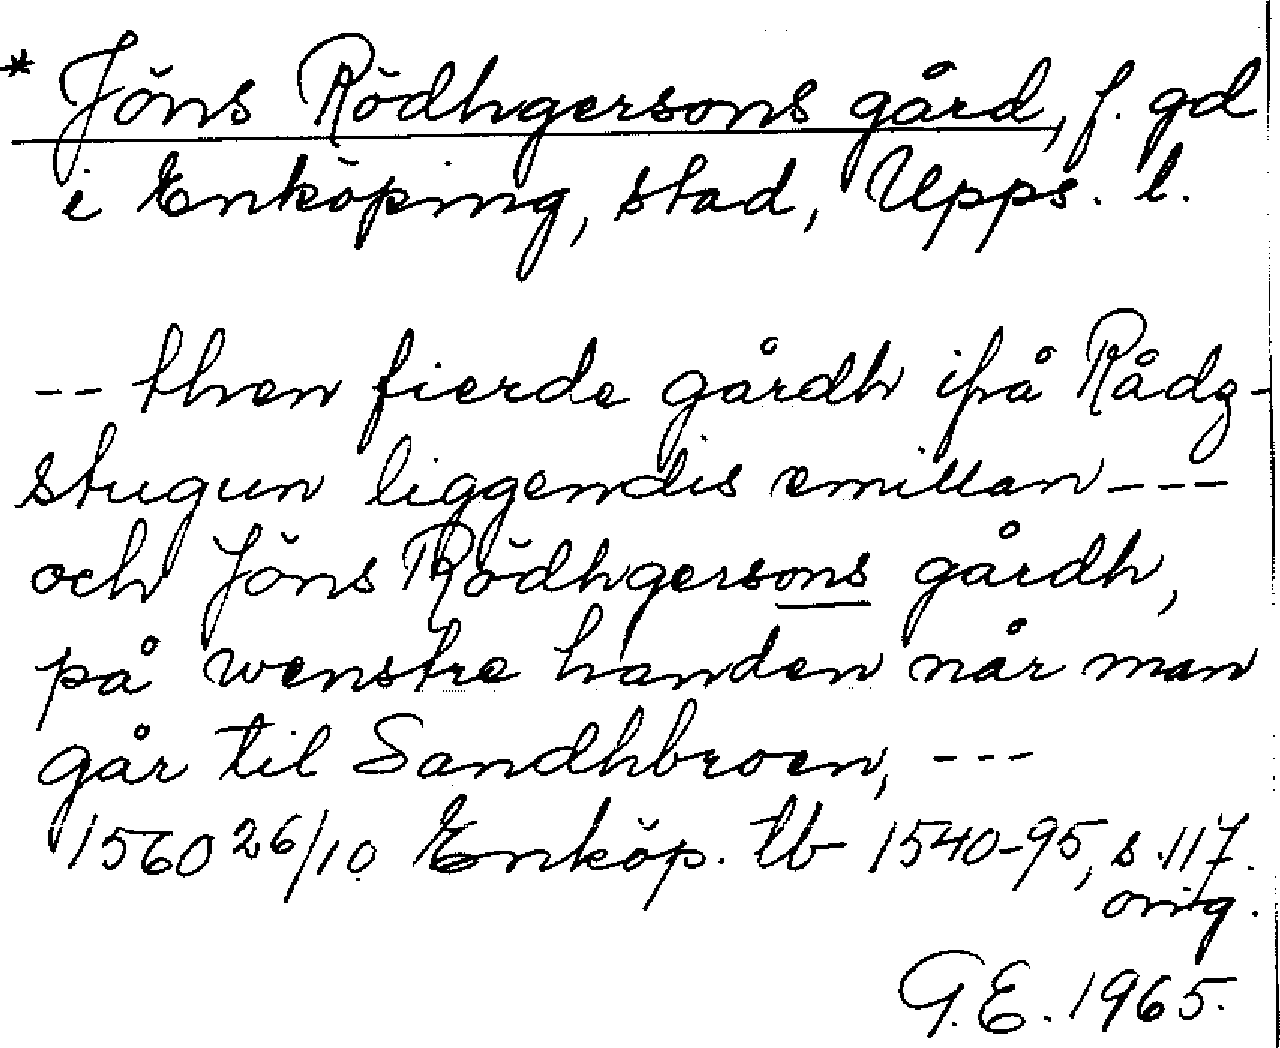 * Jöns Rödhgersons gård, f. gd
i Enköping, stad, Upps. l.
-- then fierde gårdh ifrå Rådz-
stugun liggendis emillan ---
och Jöns Rödhgersons gårdh,
på wenstre handen når man
går til Sandhbroen, ---
1560 26/10 Enköp. tb 1540-95, s. 117.
orig.
G.E. 1965.